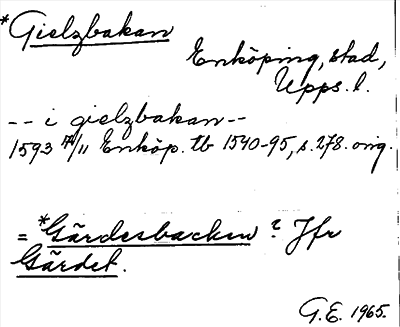 *Gielzbakan
Enköping, stad,
Upps. l.
-- i gielzbakan --
1593 17/11 Enköp. tb 1540-95, s. 278. orig.
= *Gärdesbacken ? Jfr
Gärdet.
G.E. 1965.